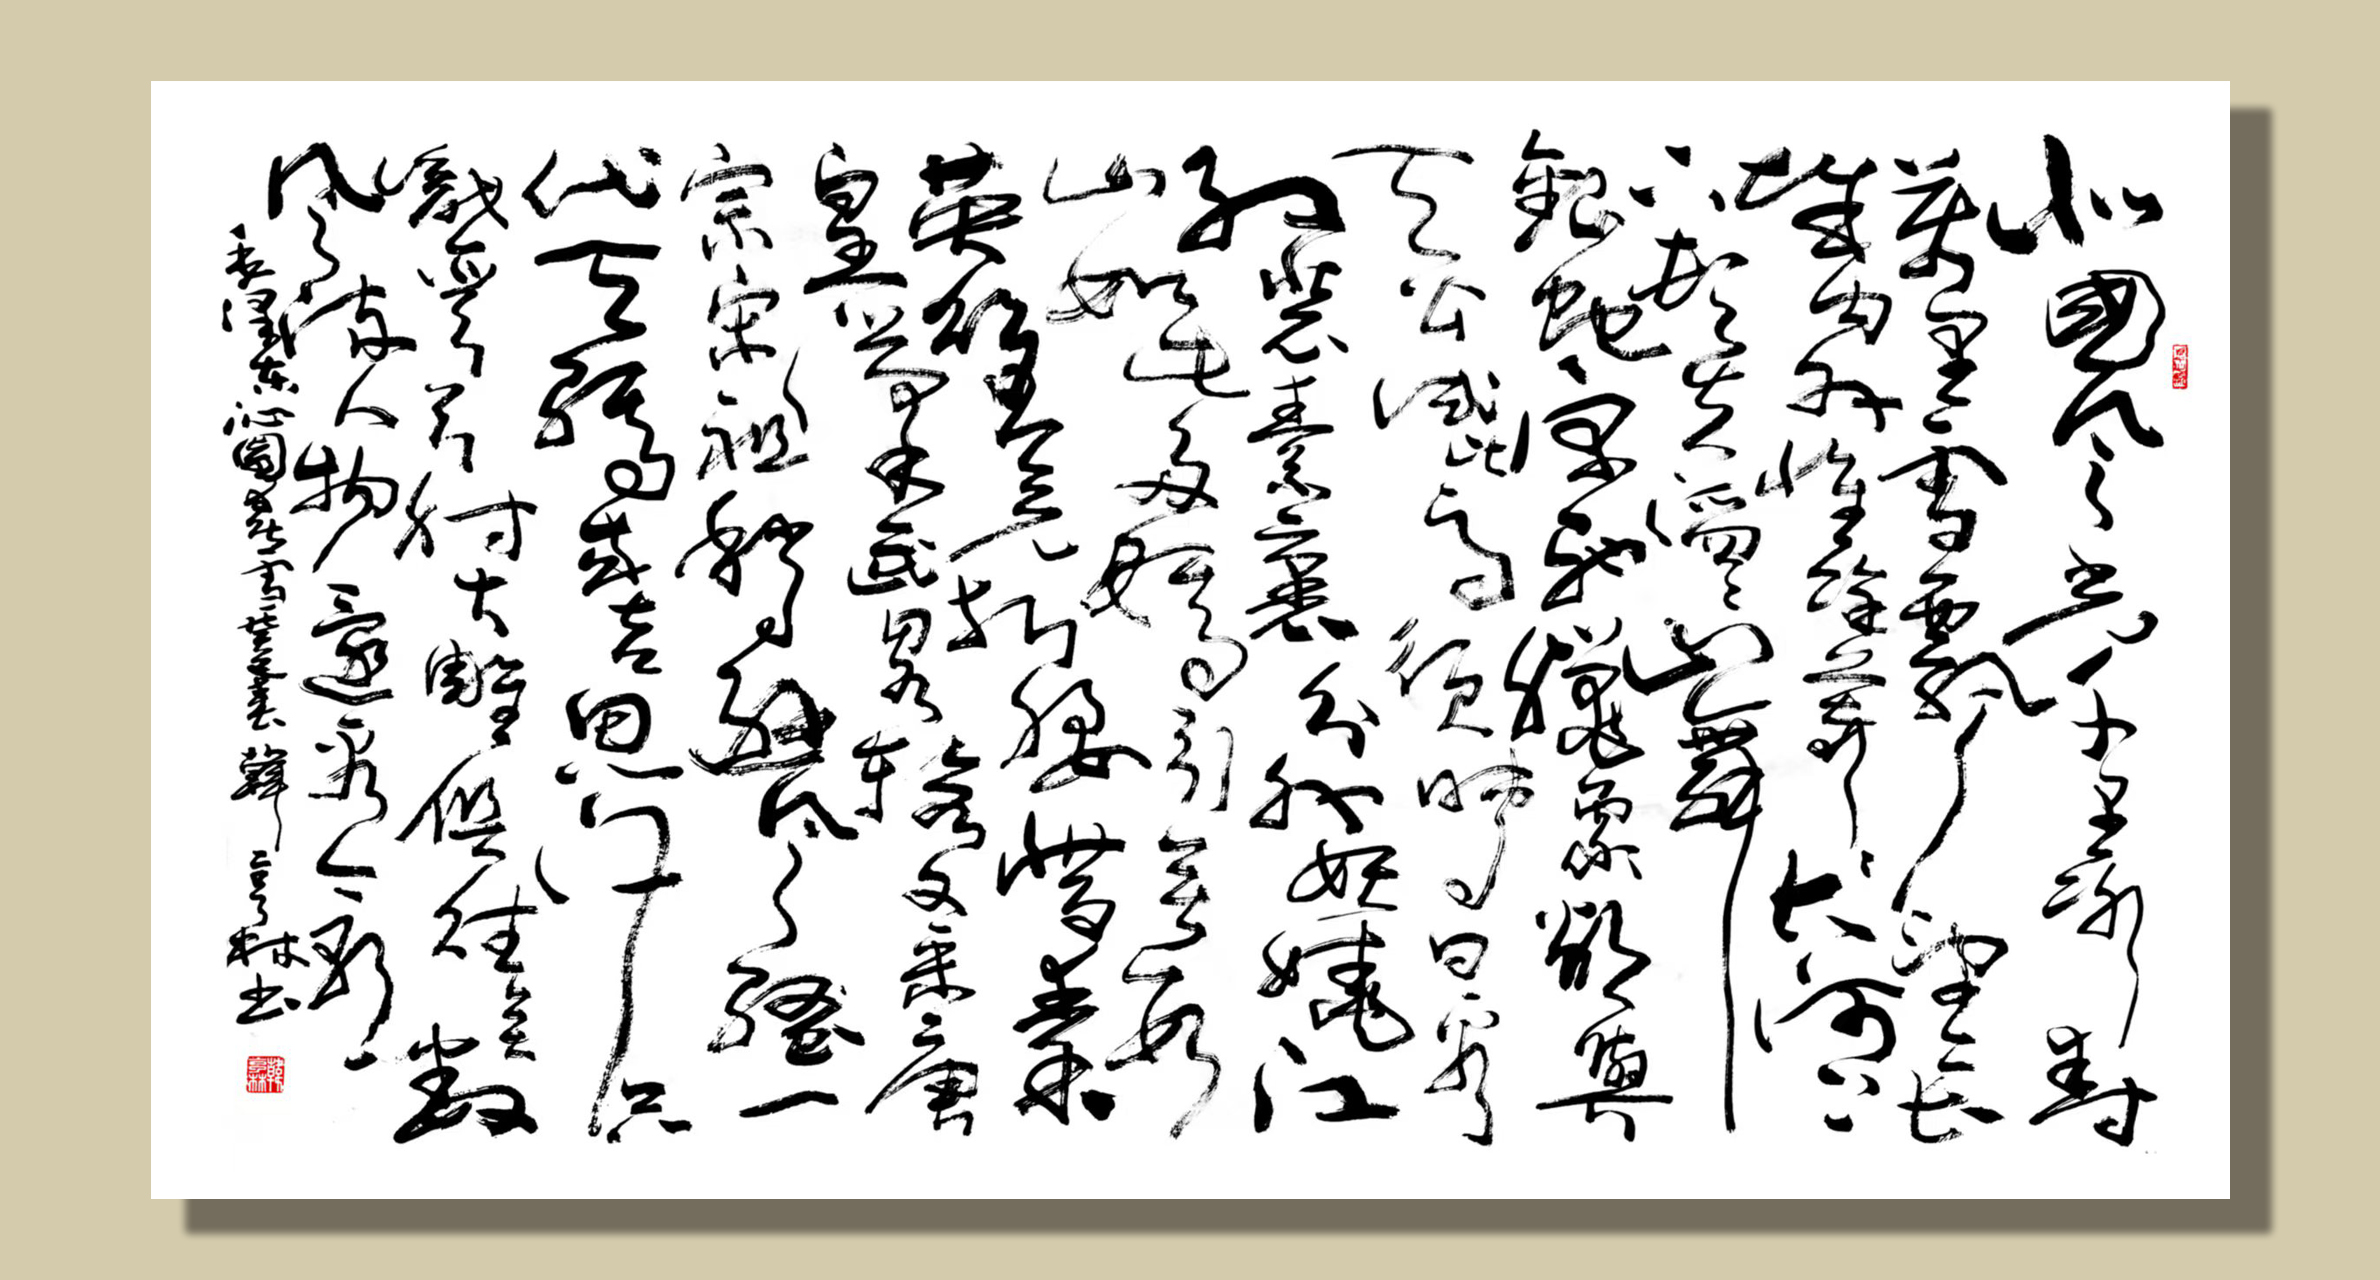 北國風光千里冰封
萬里雪飄望長
城内外惟餘莽莽大河上
下頓失滔滔山舞
銀蛇原馳臘象欲與
天公試比高須晴日看
紅裝素裹分外妖嬈江
山如此多嬌引無數
英雄競折腰惜秦
皇漢武略輸文采唐
宗宋祖稍遜風騷一
代天驕成吉思汗只
識彎弓射大雕俱往矣數
風流人物還看今朝
毛澤東沁園春雪 韓亨林書
韓亨林